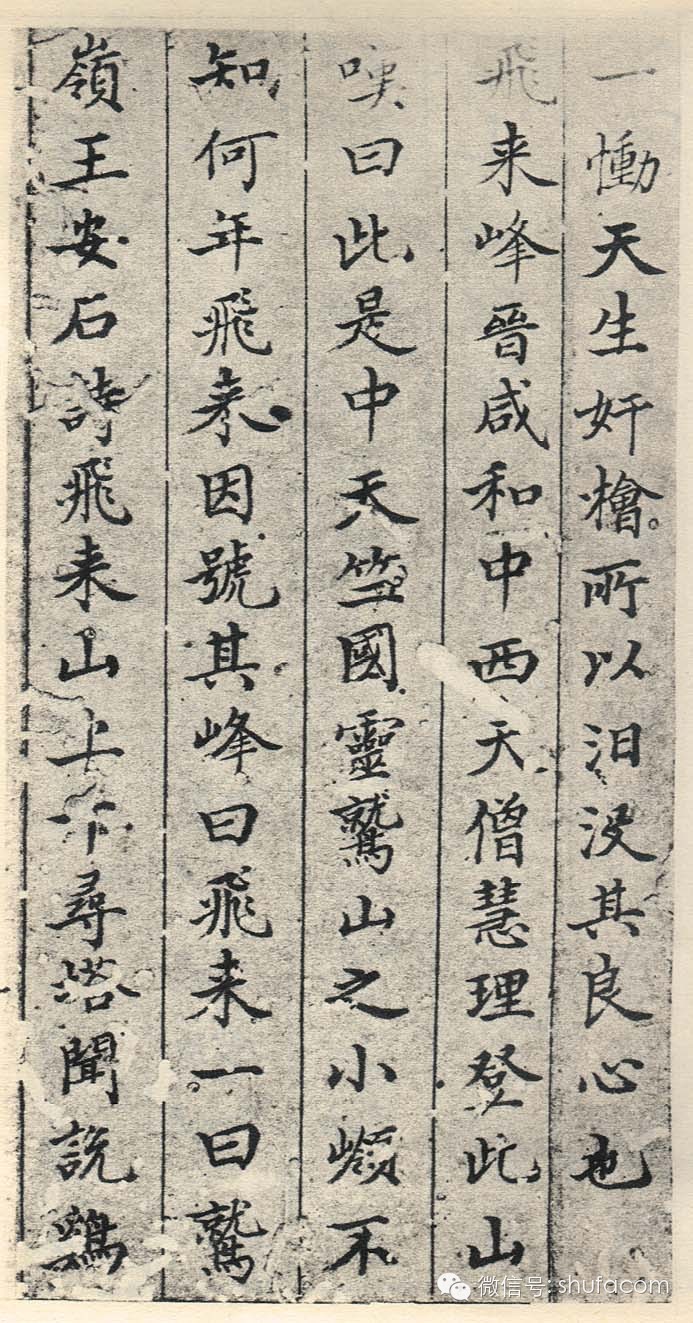 一慟天生奸檜所以汨没其良心也
飛来峰晉咸和中西天僧慧理登此山
嘆曰此是中天竺國靈鷲山之小嶺不
知何年飛来因號其峰曰飛来一曰鷲
嶺王安石詩飛来山上下尋塔聞說鷄
微信号: shufacom